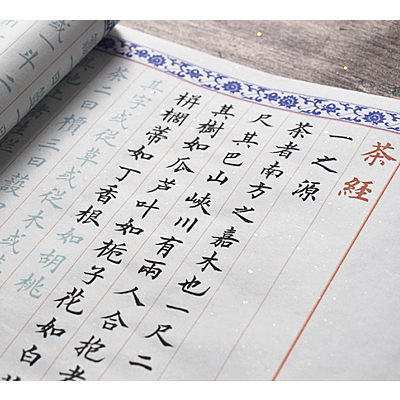 茶經
一之源
茶者南方之嘉木也一尺二
尺其巴山峽川有兩人合抱者
其樹如瓜芦叶如栀子花如白
栟櫚蒂如丁香根如胡桃
其字或從草或從木或
二曰檟